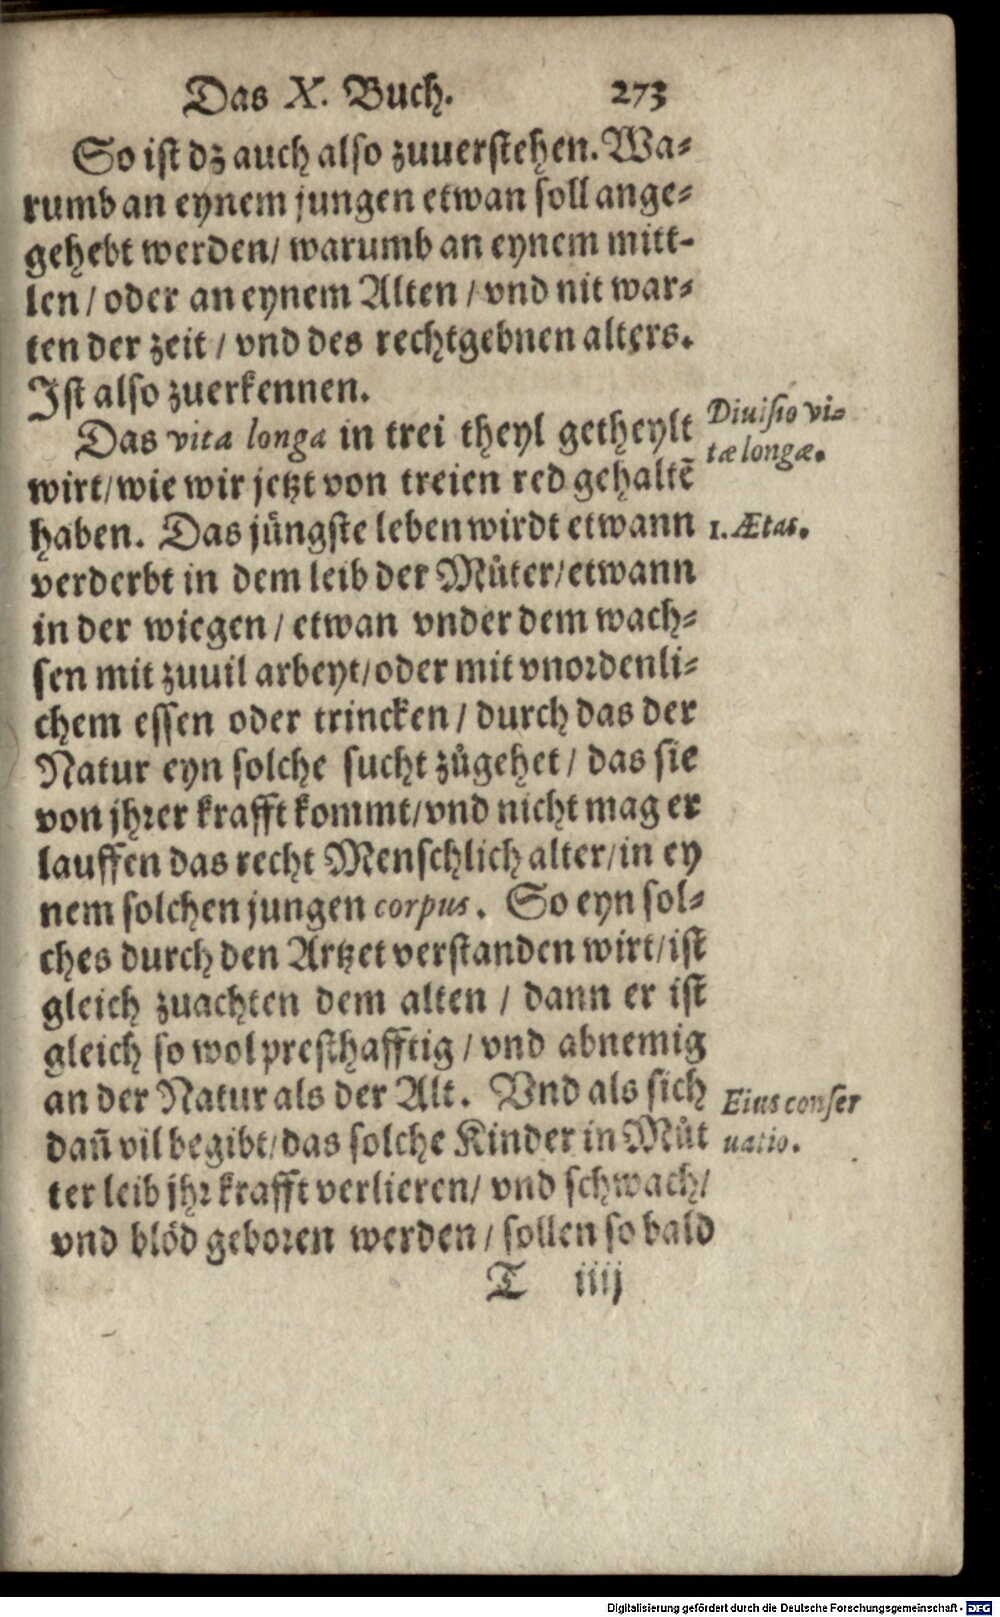 Das X. Buch. 273
So ist dz auch also zuuerstehen. Wa⸗
rumb an eynem jungen etwan soll ange⸗
gehebt werden/ warumb an eynem mitt⸗
len / oder an eynem Alten / vnd nit war⸗
ten der zeit / vnd des rechtgebnen alters.
Ist also zuerkennen.
Das vita longa in trei theyl getheylt
Diuisio vi-
tæ longæ.
wirt/ wie wir jetzt von treien red gehaltẽ
haben. Das jüngste leben wirdt etwann
1. Ætas.
verderbt in dem leib der Můter/ etwann
in der wiegen / etwan vnder dem wach⸗
sen mit zuuil arbeyt/ oder mit vnordenli⸗
chem essen oder trincken / durch das der
Natur eyn solche sucht zůgehet / das sie
von jhrer krafft kommt/ vnd nicht mag er
lauffen das recht Menschlich alter/ in ey
nem solchen jungen corpus. So eyn sol⸗
ches durch den Artzet verstanden wirt/ ist
gleich zuachten dem alten / dann er ist
gleich so wol presthafftig / vnd abnemig
an der Natur als der Alt. Vnd als sich
Eius conser
uatio.
dañ vil begibt/ das solche Kinder in Můt
ter leib jhr krafft verlieren/ vnd schwach/
vnd blöd geboren werden / sollen so bald
T iiij
Digitalisierung gefördert durch die Deutsche Forschungsgemeinschaft - DFG